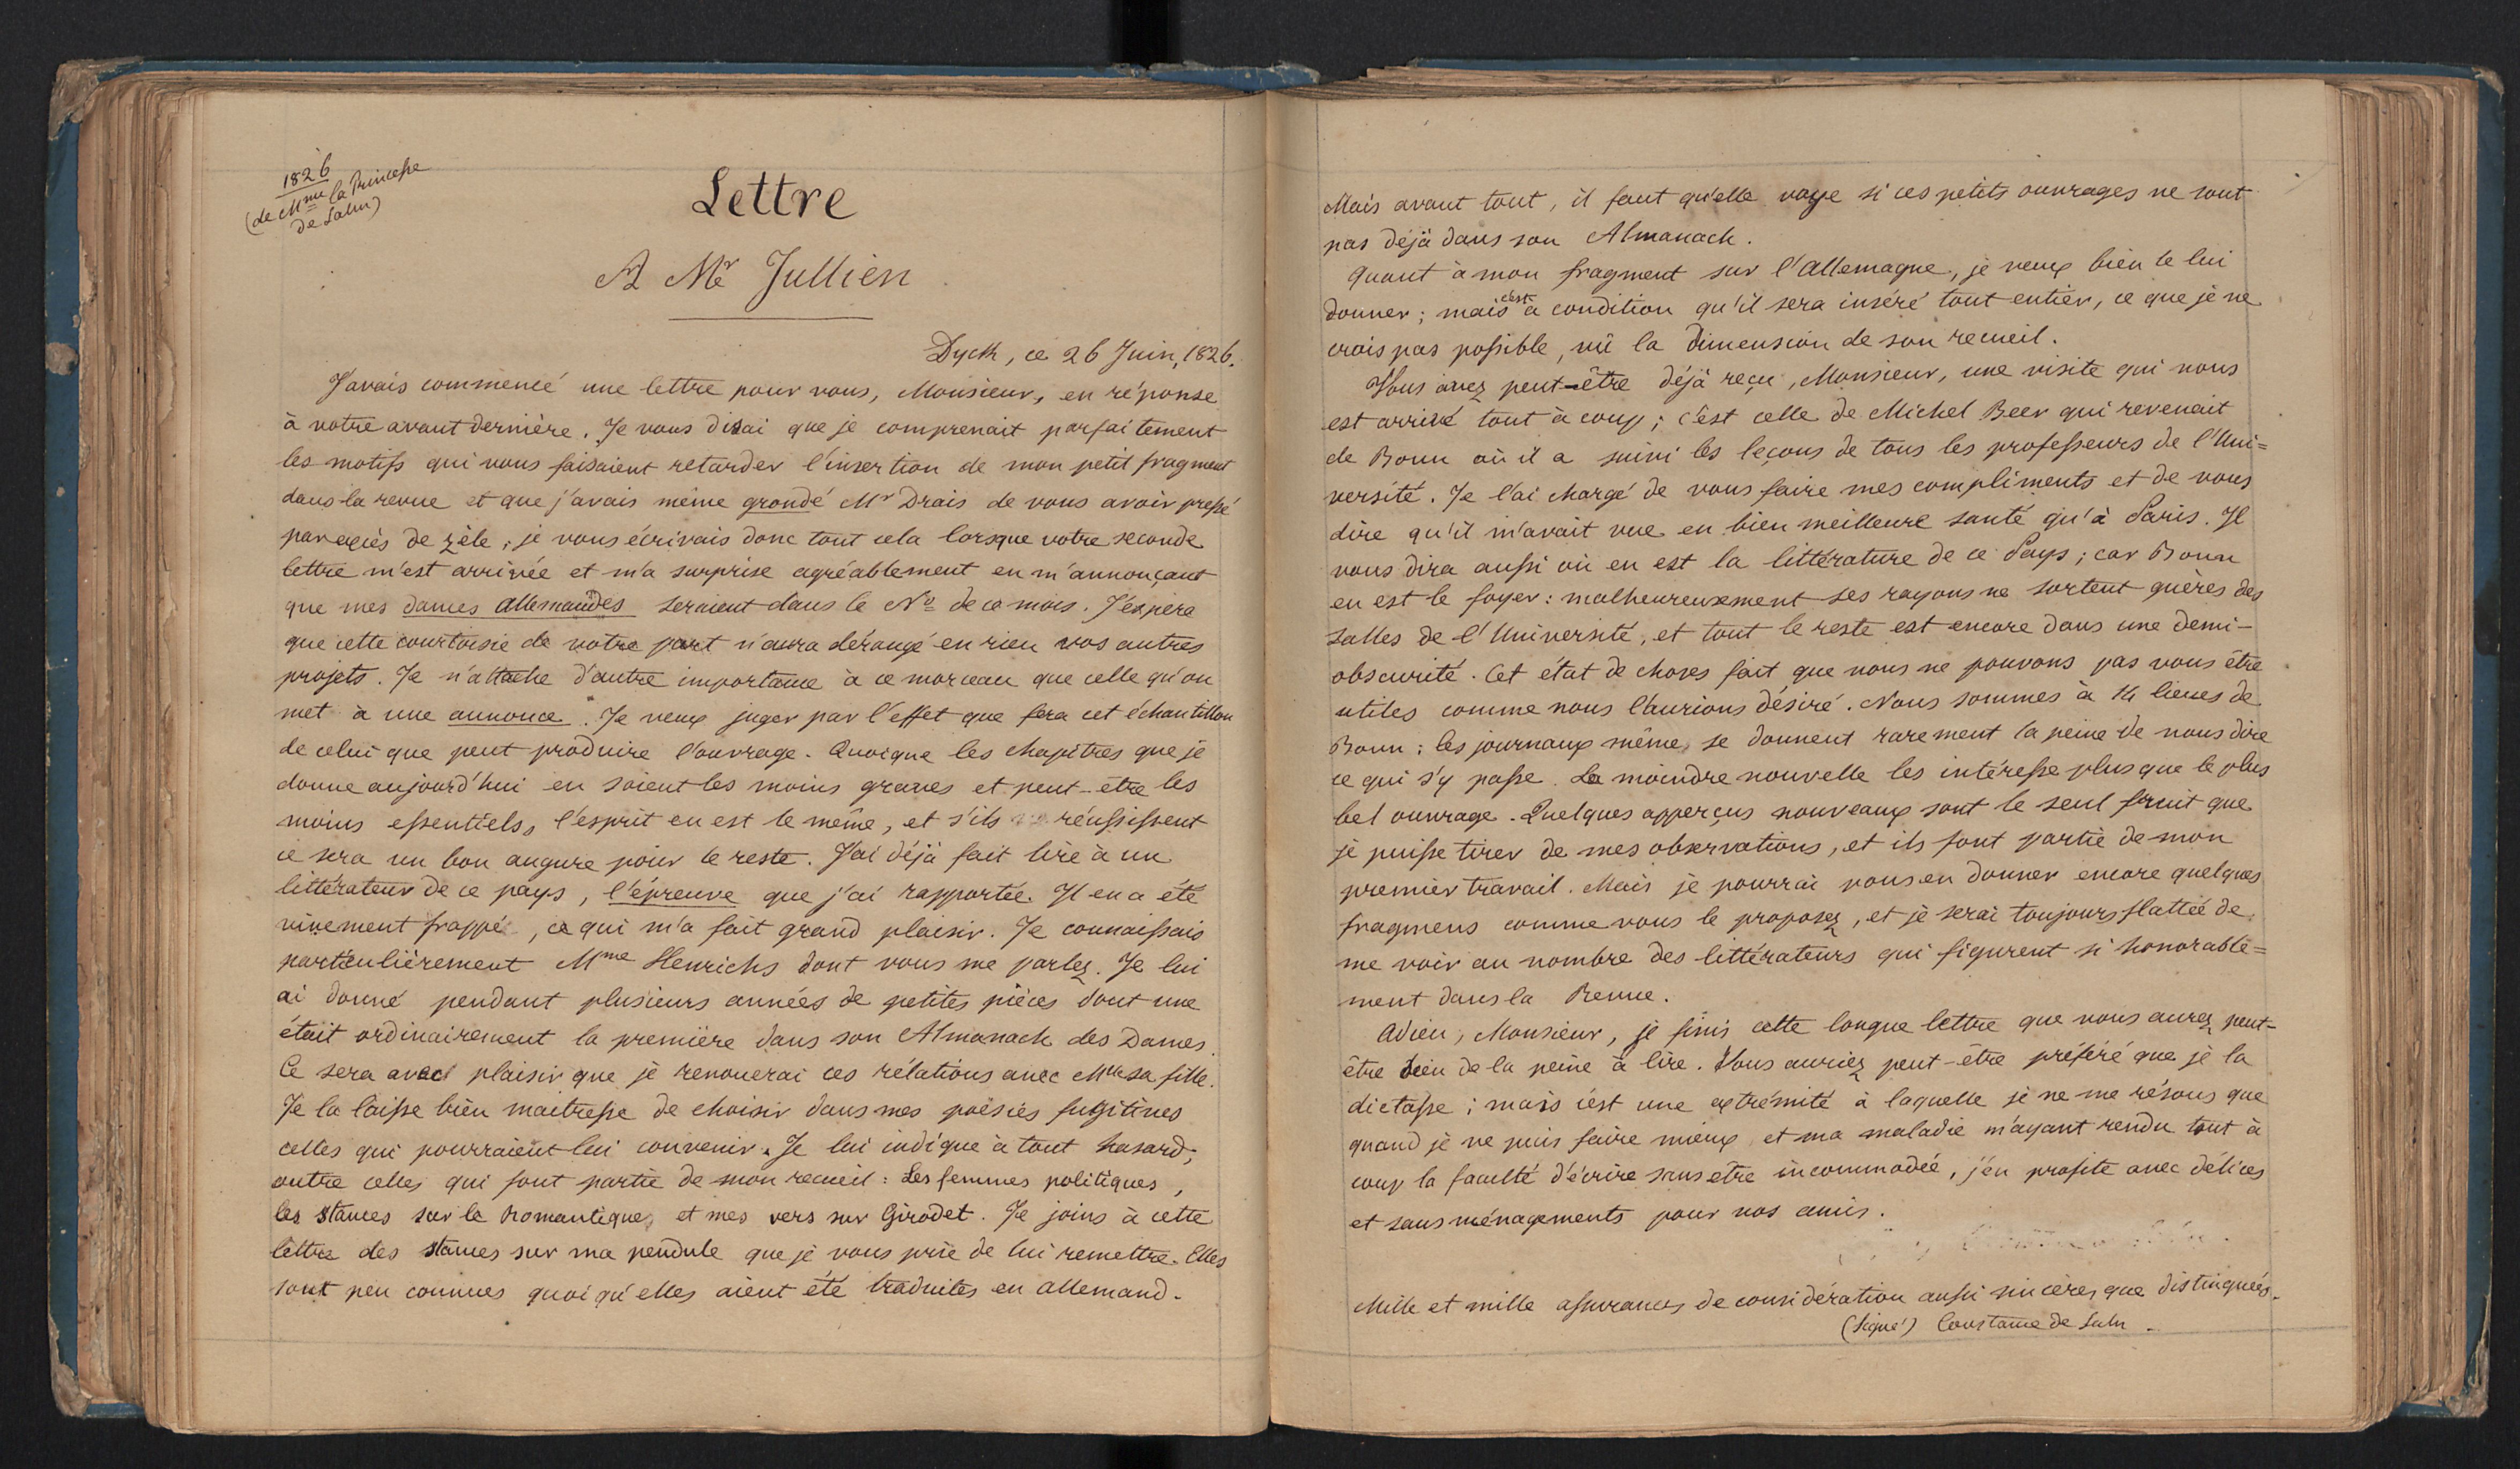 1826
(de Mme la Princesse
de Salm)
Lettre
A Mr Jullien
Dyck, ce 26 Juin, 1826.
J'avais commencé une lettre pour vous, Monsieur, en réponse
à votre avant dernière. Je vous disai que je comprenait parfaitement
les motifs qui vous faisaient retarder l'insertion de mon petit fragment
dans la revue et que j'avais même grondé Mr Drais de vous avoir pressé
par excès de zèle ; je vous écrivais donc tout cela lorsque votre seconde
lettre m'est arrivée et m'a surprise agréablement en m'annonçant
que mes dames allemandes seraient dans le No de ce mois. J'espère
que cette courtoisie de votre part n'aura dérangé en rien vos autres
projets. Je n'attache d'autre importance à ce morceau que celle qu'on
met à une annonce. Je veux juger par l'effet que fera cet échantillon
de celui que peut produire l'ouvrage. Quoique les chapitres que je
donne aujourd'hui en soient les moins graves et peut-être les
moins essentiels, l'esprit en est le même, et s'ils réussissent
ce sera un bon augure pour le reste. J'ai déjà fait lire à un
littérateur de ce pays, l'épreuve que j'ai rapportée. Il en a été
vivement frappé, ce qui m'a fait grand plaisir. Je connaissais
particulièrement Mme Henrichs dont vous me parlez. Je lui
ai donné pendant plusieurs années de petites pièces dont une
était ordinairement la première dans son Almanach des Dames.
Ce sera avec plaisir que je renouerai ces rélations avec Mlle sa fille.
Je la laisse bien maitresse de choisir dans mes poësies fugitives
celles qui pourraient lui convenir. Je lui indique à tout hasard,
outre celles qui font partie de mon recueil : Les femmes politiques,
les stances sur le Romantique, et mes vers sur Girodet. Je joins à cette
lettre des stances sur ma pendule que je vous prie de lui remettre. Elles
sont peu connues quoiqu'elles aient été traduites en allemand.
Mais avant tout, il faut qu'elle voye si ces petits ouvrages ne sont
pas déjà dans son Almanach.
Quant à mon fragment sur l'Allemagne, je veux bien le lui
donner ; mais c'est à condition qu'il sera inséré tout entier, ce que je ne
crois pas possible, vû la dimension de son recueil.
Vous avez peut-être déjà reçu, Monsieur, une visite qui nous
est arrivé tout à coup ; c'est celle de Michel Beer qui revenait
de Bonn où il a suivi les leçons de tous les professeurs de l'Uni=
versité. Je l'ai chargé de vous faire mes compliments et de vous
dire qu'il m'avait vue en bien meilleure santé qu'à Paris. Il
vous dira aussi où en est la littérature de ce Pays ; car Bonn
en est le foyer : malheureusement ses rayons ne sortent guères des
salles de l'Université, et tout le reste est encore dans une demi-
obscurité. Cet état de choses fait que nous ne pouvons pas vous être
utiles comme nous l'aurions désiré. Nous sommes à 14 lieues de
Bonn : les journaux même, se donnent rarement la peine de nous dire
ce qui s'y passe. La moindre nouvelle les intéresse plus que le plus
bel ouvrage. Quelques apperçus nouveaux sont le seul fruit que
je puisse tirer de mes observations, et ils font partie de mon
premier travail. Mais je pourrai vous en donner encore quelques
fragmens comme vous le proposez, et je serai toujours flattée de
me voir au nombre des littérateurs qui figurent si honorable=
ment dans la Revue.
Adieu, Monsieur, je finis cette longue lettre que vous aurez peut-
être bien de la peine à lire. Vous auriez peut-être préféré que je la
dictasse ; mais c'est une extrémité à laquelle je ne me résous que
quand je ne puis faire mieux, et ma maladie m'ayant rendu tout à
coup la faculté d'écrire sans etre incommodée, j'en profite avec délices
et sans ménagements pour nos amis.
Mille et mille assurances de considération aussi sincères que distinguées.
(Signé) Constance de Salm.